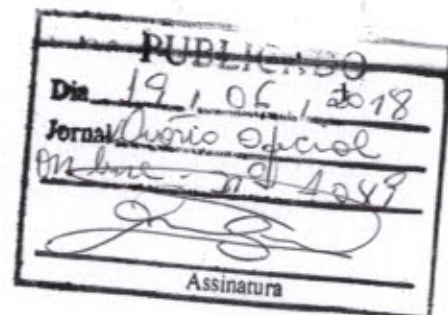 PUBLICADO
Dia 19 / 06 / 2018
Jornal Diário Oficial
On line - nº
Assinatura